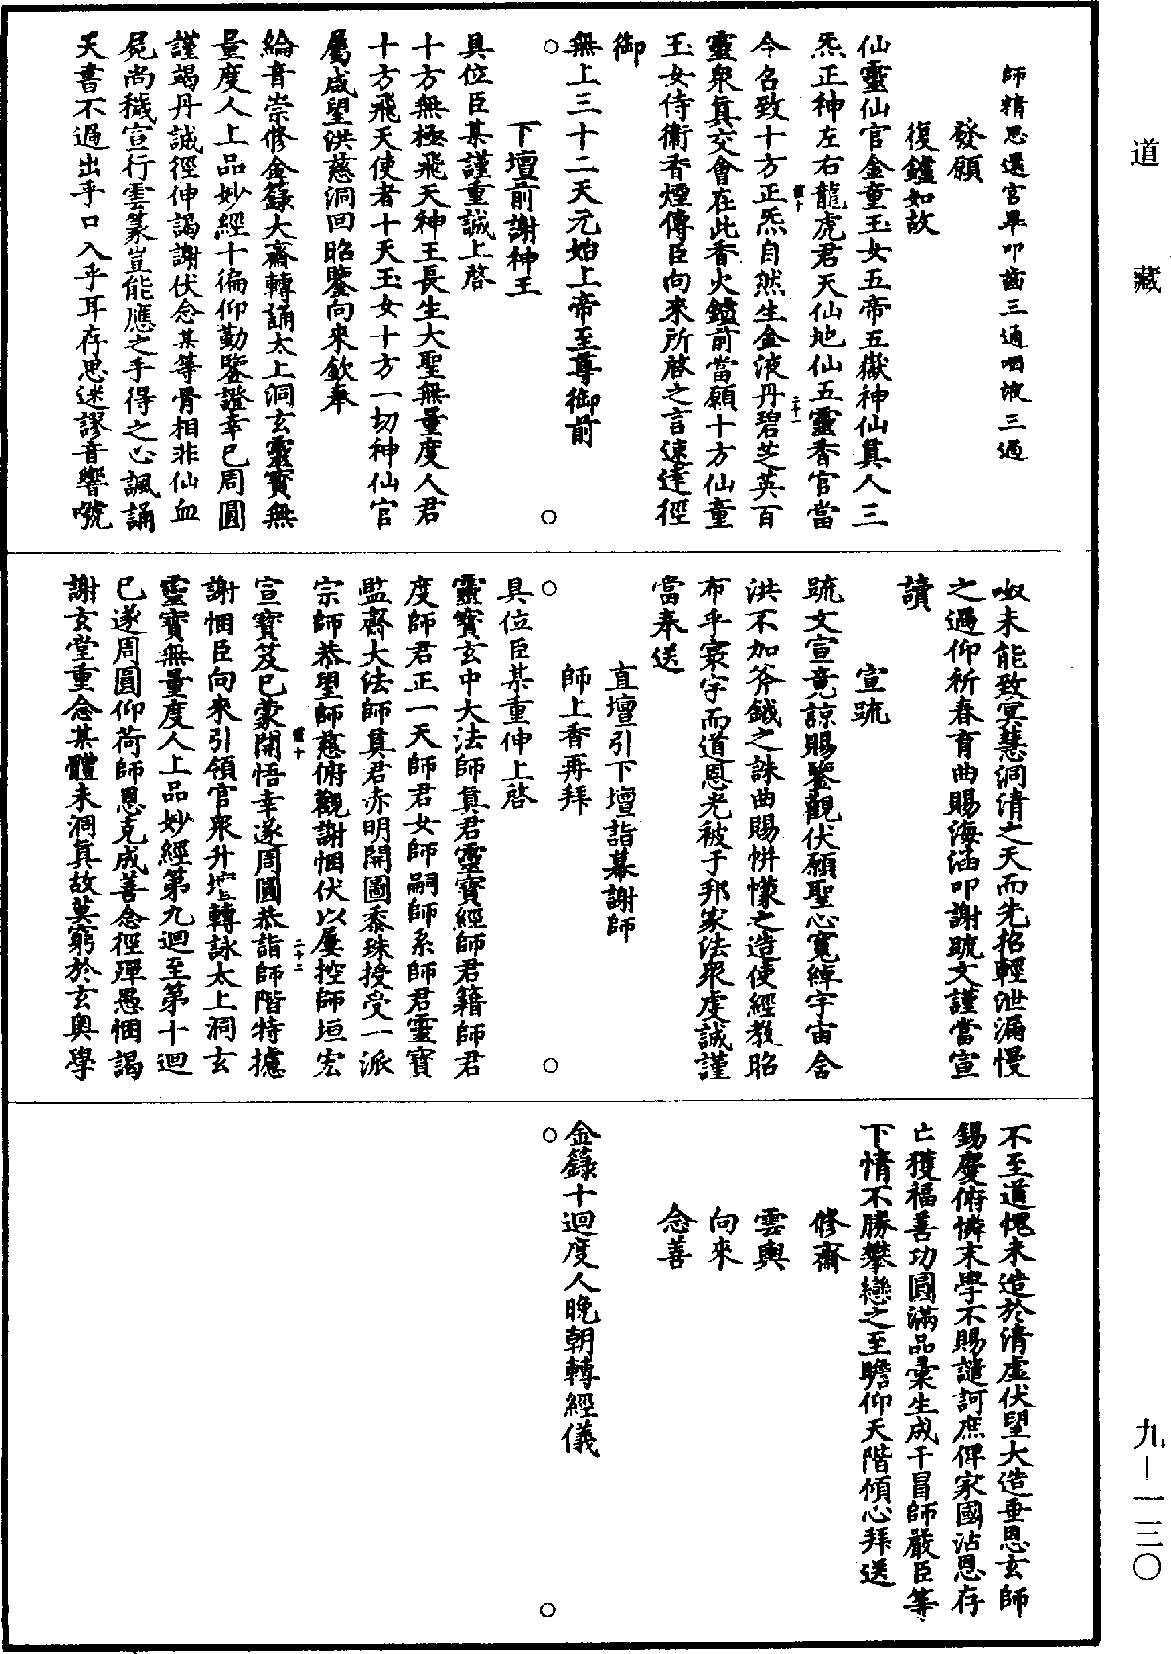 道藏
師精思還宮畢叩齒三通咽液三過
發願
復鑪如故
仙靈仙官金童玉女五帝五嶽神仙真人三
炁正神左右龍虎君天仙地仙五靈香官當
今召致十方正炁自然生金液丹碧芝英百
靈衆真交會在此香火鑪前當願十方仙童
玉女侍衛香煙傳臣向來所啓之言速達徑
御
無上三十二天元始上帝至尊御前
下壇前謝神王
具位臣某謹重誠上啓
十方無極飛天神王長生大聖無量度人君
十方飛天使者十天玉女十方一切神仙官
屬咸望洪慈洞回昭鑒向來欽奉
綸音崇修金籙大齋轉誦太上洞玄靈寶無
量度人上品妙經十徧仰勤鑒證幸已周圓
謹竭丹誠徑伸謁謝伏念某等骨相非仙血
屍尚穢宣行雲篆豈能應之手得之心諷誦
天書不過出乎口入乎耳存思迷謬音響號
呶未能致冥慧洞清之天而先招輕泄漏慢
之過仰祈春育曲賜海涵叩謝疏文謹當宣
讀
宣疏
疏文宣竟諒賜鑒觀伏願聖心寬綽宇宙含
洪不加斧鉞之誅曲賜帡幪之造使經教昭
布乎寰宇而道恩光被于邦家法衆虔誠謹
當奉送
直壇引下壇詣幕謝師
師上香再拜
具位臣某重伸上啓
靈寶玄中大法師真君靈寶經師君籍師君
度師君正一天師君女師嗣師系師君靈寶
監齋大法師真君赤明開圖黍珠授受一派
宗師恭望師慈俯觀謝悃伏以屢控師垣宏
宣寶笈已蒙開悟幸遂周圓恭詣師階特攄
謝悃臣向來引領官衆升壇轉詠太上洞玄
靈寶無量度人上品妙經第九迴至第十迴
已遂周圓仰荷師恩克成善念徑殫愚悃謁
謝玄堂重念某體未洞真故莫窮於玄奧學
不至道愧未造於清虛伏望大造垂恩玄師
錫慶俯憐末學不賜譴訶庶俾家國沾恩存
亡獲福善功圓滿品彙生成干冒師嚴臣等
下情不勝攀戀之至瞻仰天階傾心拜送
修齋
雲輿
向來
念善
金籙十迴度人晚朝轉經儀
九—一三〇